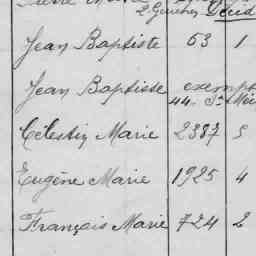 2 Décéd
Jean Baptiste 63 1
Jean Baptiste exempt
44. St
Célestin Marie 2387 5
Eugène Marie 1925 4
François Marie 724 2